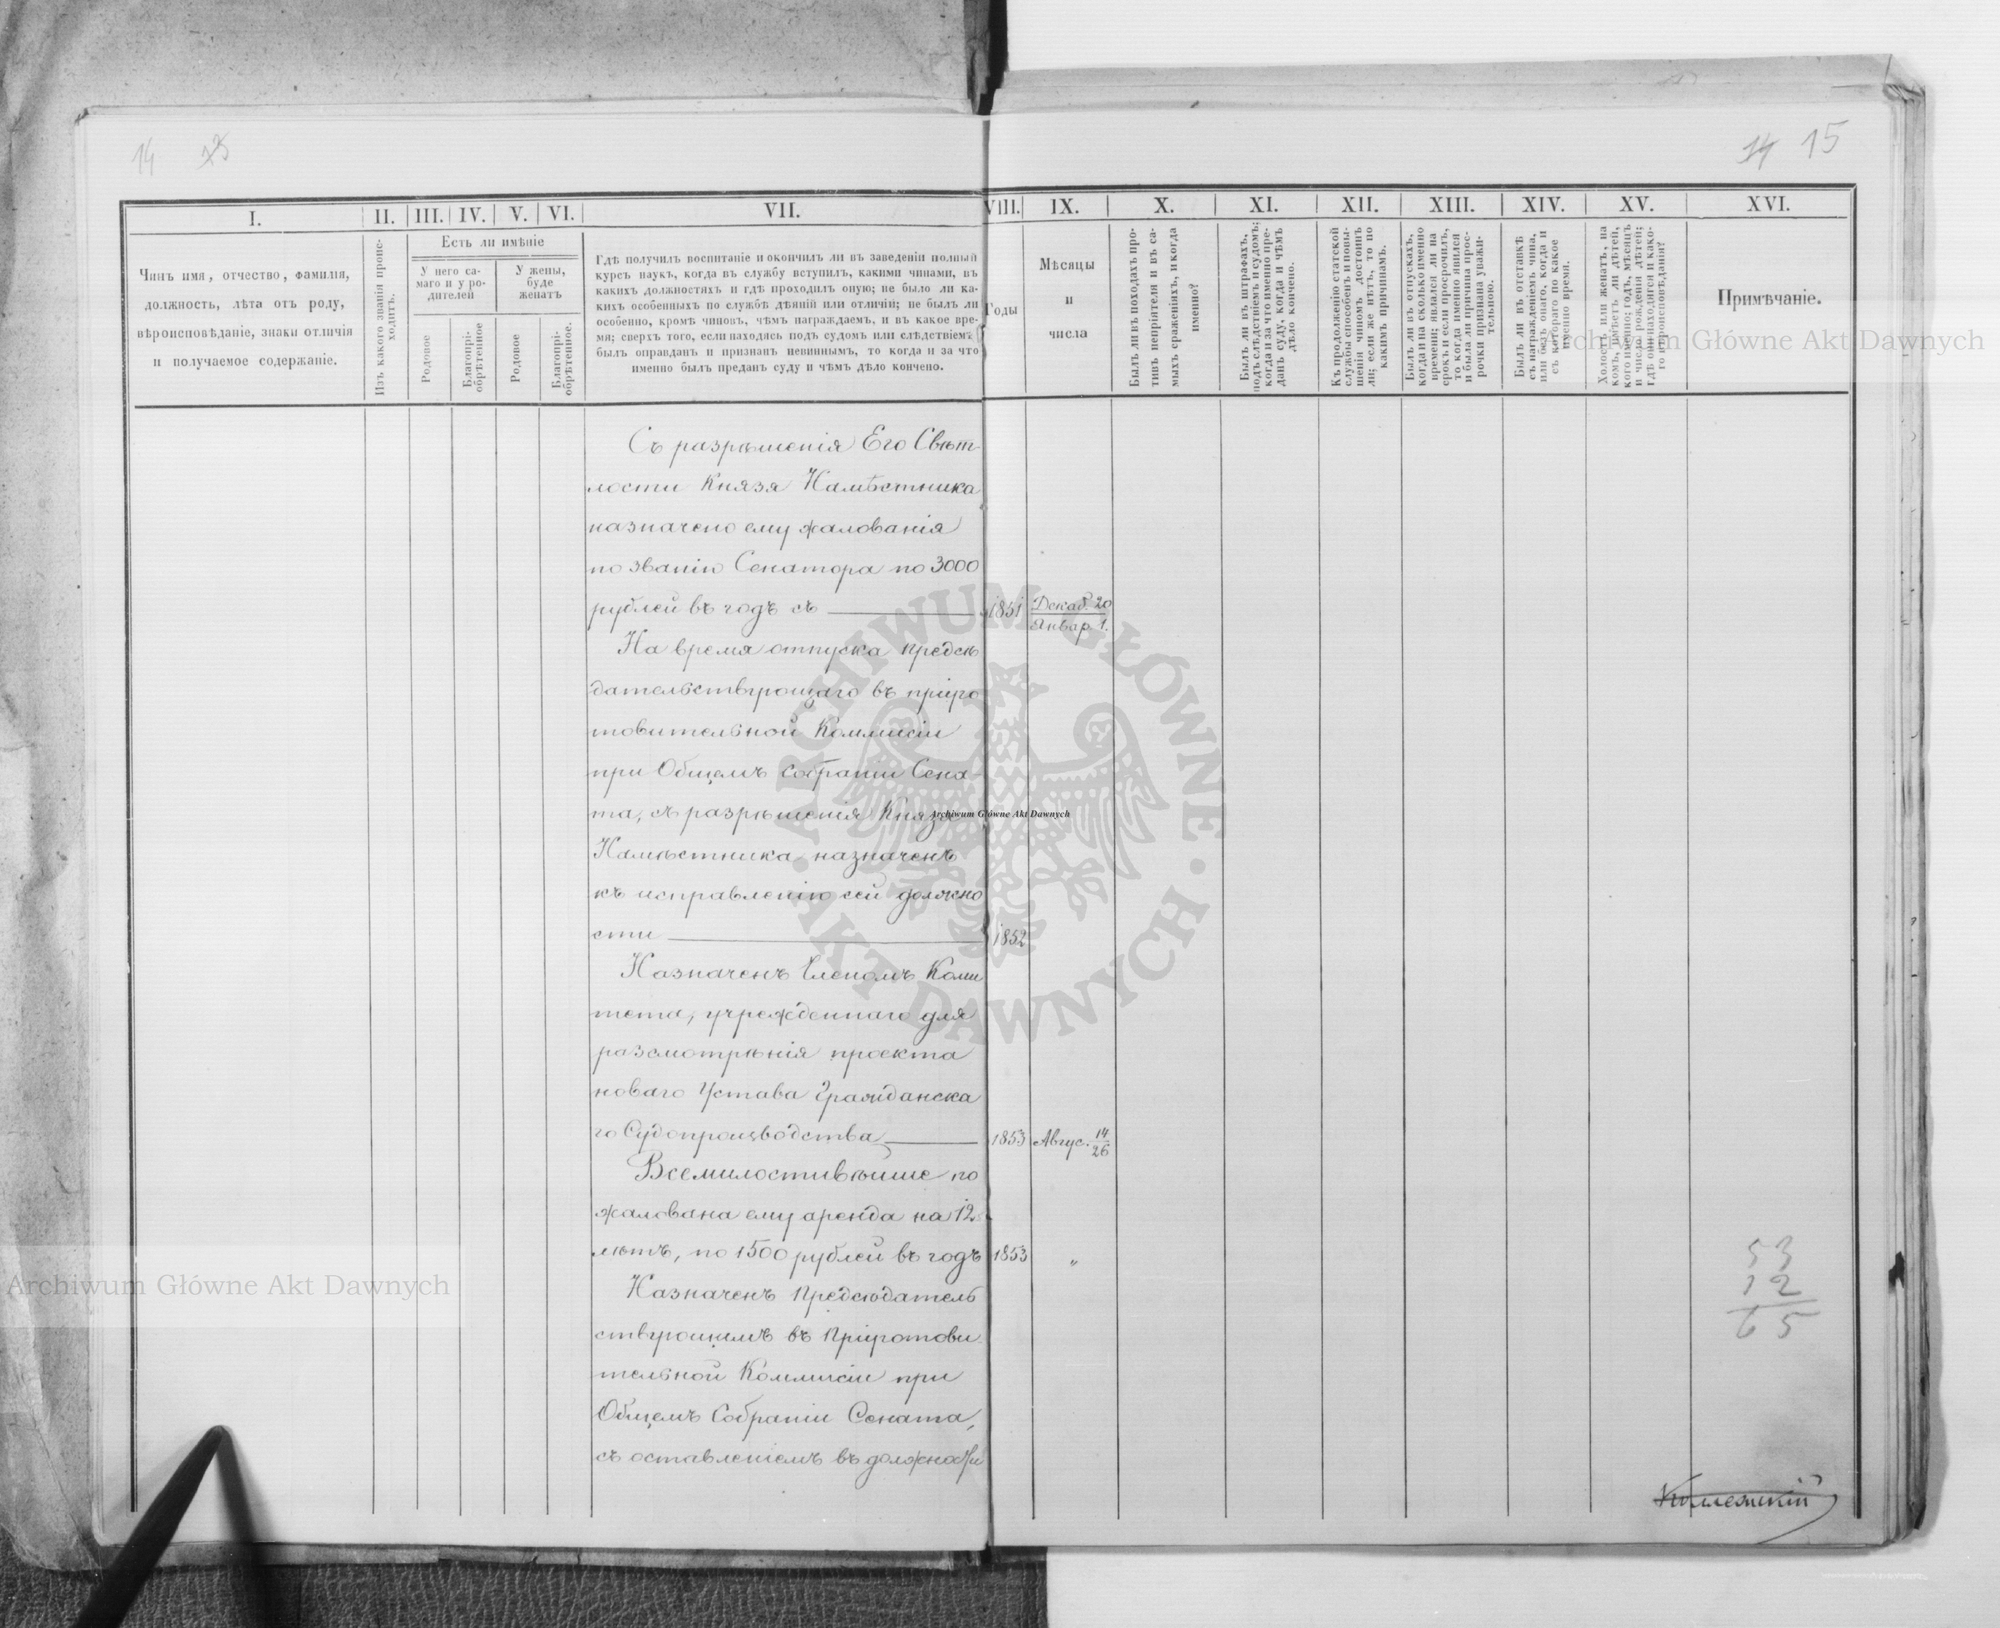 14
14 15
I. II. III. IV. V. VI. VII. VIII. IX. X. XI. XII. XIII. XIV. XV. XVI.
Чинъ имя, отчество, фамилія,
должность, лѣта отъ роду,
вѣроисповѣданіе, знаки отличія
и получаемое содержаніе.
Изъ какого званія проис-
ходитъ.
Есть ли имѣніе
У него са-
маго и у ро-
дителей
У жены,
буде
женатъ
Родовое
Благопрі-
обрѣтенное
Родовое
Благопрі-
обрѣтенное.
Гдѣ получилъ воспитаніе и окончилъ ли въ заведеніи полный
курсъ наукъ, когда въ службу вступилъ, какими чинами, въ
какихъ должностяхъ и гдѣ проходилъ оную; не было ли ка-
кихъ особенныхъ по службѣ дѣяній или отличій; не былъ ли
особенно, кромѣ чиновъ, чѣмъ награждаемъ, и въ какое вре-
мя; сверхъ того, если находясь подъ судомъ или слѣдствіемъ
былъ оправданъ и признанъ невиннымъ, то когда и за что
именно былъ преданъ суду и чѣмъ дѣло кончено.
Годы
Мѣсяцы
и
числа
Былъ ли въ походахъ про-
тивъ непріятеля и въ са-
мыхъ сраженіяхъ, и когда
именно?
Былъ ли въ штрафахъ,
подъ слѣдствіемъ и судомъ;
когда и за что именно пре-
данъ суду, когда и чѣмъ
дѣло кончено.
Къ продолженію статской
службы способенъ и повы-
шенія чиномъ достоинъ
ли; если же нѣтъ, то по
какимъ причинамъ.
Былъ ли въ отпускахъ,
когда и на сколько именно
времени; являлся ли на
срокъ и если просрочилъ,
то когда именно явился
и была ли причина прос-
рочки признана уважи-
тельною.
Былъ ли въ отставкѣ
съ награжденіемъ чина,
или безъ онаго, когда и
съ котораго по какое
именно время.
Холостъ или женатъ, на
комъ, имѣетъ ли дѣтей,
кого именно; годъ, мѣсяцъ
и число рожденія дѣтей;
гдѣ они находятся и како-
го вѣроисповѣданія?
Примѣчаніе.
Съ разрѣшенія Его Свѣт-
лости Князя Намѣстника
назначено ему жалованія
по званію Сенатора по 3000
рублей въ годъ съ 1851 Декаб. 20
Январ 1.
На время отпуска предсѣ
дательствующаго въ пріуго
товительной Коммисіи
при Общемъ собраніи Сена-
та, съ разрѣшенія Князя
Намѣстника, назначенъ
къ исправленію сей должно
сти 1852
Назначенъ Членомъ Коми
тета, учрежденнаго для
разсмотрѣнія проекта
новаго Устава Гражданска
го Судопроизводства 1853 Авгус. 14/26
Всемилостивѣйше по
жалована ему аренда на 12
лѣтъ, по 1500 рублей въ годъ 1853 "
Назначенъ Предсѣдатель
ствующимъ въ Пріуготови
тельной Коммисіи при
Общемъ Собраніи Сената,
съ оставленіемъ въ должности
53
12
65
Archiwum Główne Akt Dawnych
Archiwum Główne Akt Dawnych
Archiwum Główne Akt Dawnych
ARCHIWUM GŁÓWNE · AKT DAWNYCH ·